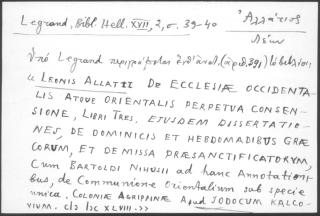 Legrand, Bibl. Hell. XVII, 2, σ. 39-40
Ἀλλάτιος
Λέων
Ὑπὸ Legrand περιγράφεται (ἀρ. 391)
« LEONIS ALLATII DE ECCLESIÆ OCCIDENTA-
LIS ATQUE ORIENTALIS PERPETUA CONSEN-
SIONE, LIBRI TRES, EJUSDEM DISSERTATIO-
NES, DE DOMINICIS ET HEBDOMADIBUS GRÆ
CORUM, ET DE MISSA PRÆSANCTIFICATORUM,
Cum BARTOLDI NIHUSII ad hanc Annotation-
bus, de Communione Orientalium sub specie
unnica. COLONIÆ AGRIPPINÆ Apud JODOCUM KALCO-
VIUM. CIƆ IƆC XLVIII. »